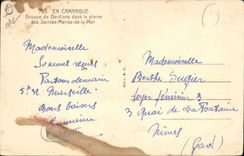 753. EN CAMARGUE
Groupe de Gardians dans la plaine
des Saintes-Maries-de-la-Mer
Mademoiselle
Sommes reçus
Partons demain
5h 52 Marseille
Bons baisers
Mademoiselle
Berthe
Foyer Féminin 3
3 Quai de La Fontaine
Nîmes
(Gard)